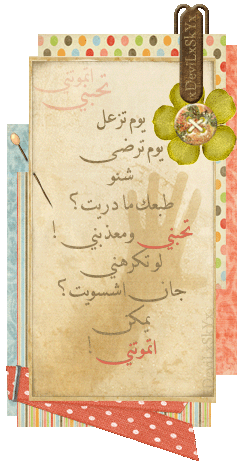 اتموتني
تحبني
xDeviLxSkYx
يوم تزعل
يوم ترضى
شنو
طبعك ما دريت؟
تحبني ومعذبني !
لو تكرهني
جان اشسويت؟
يمكن
اتموتني !